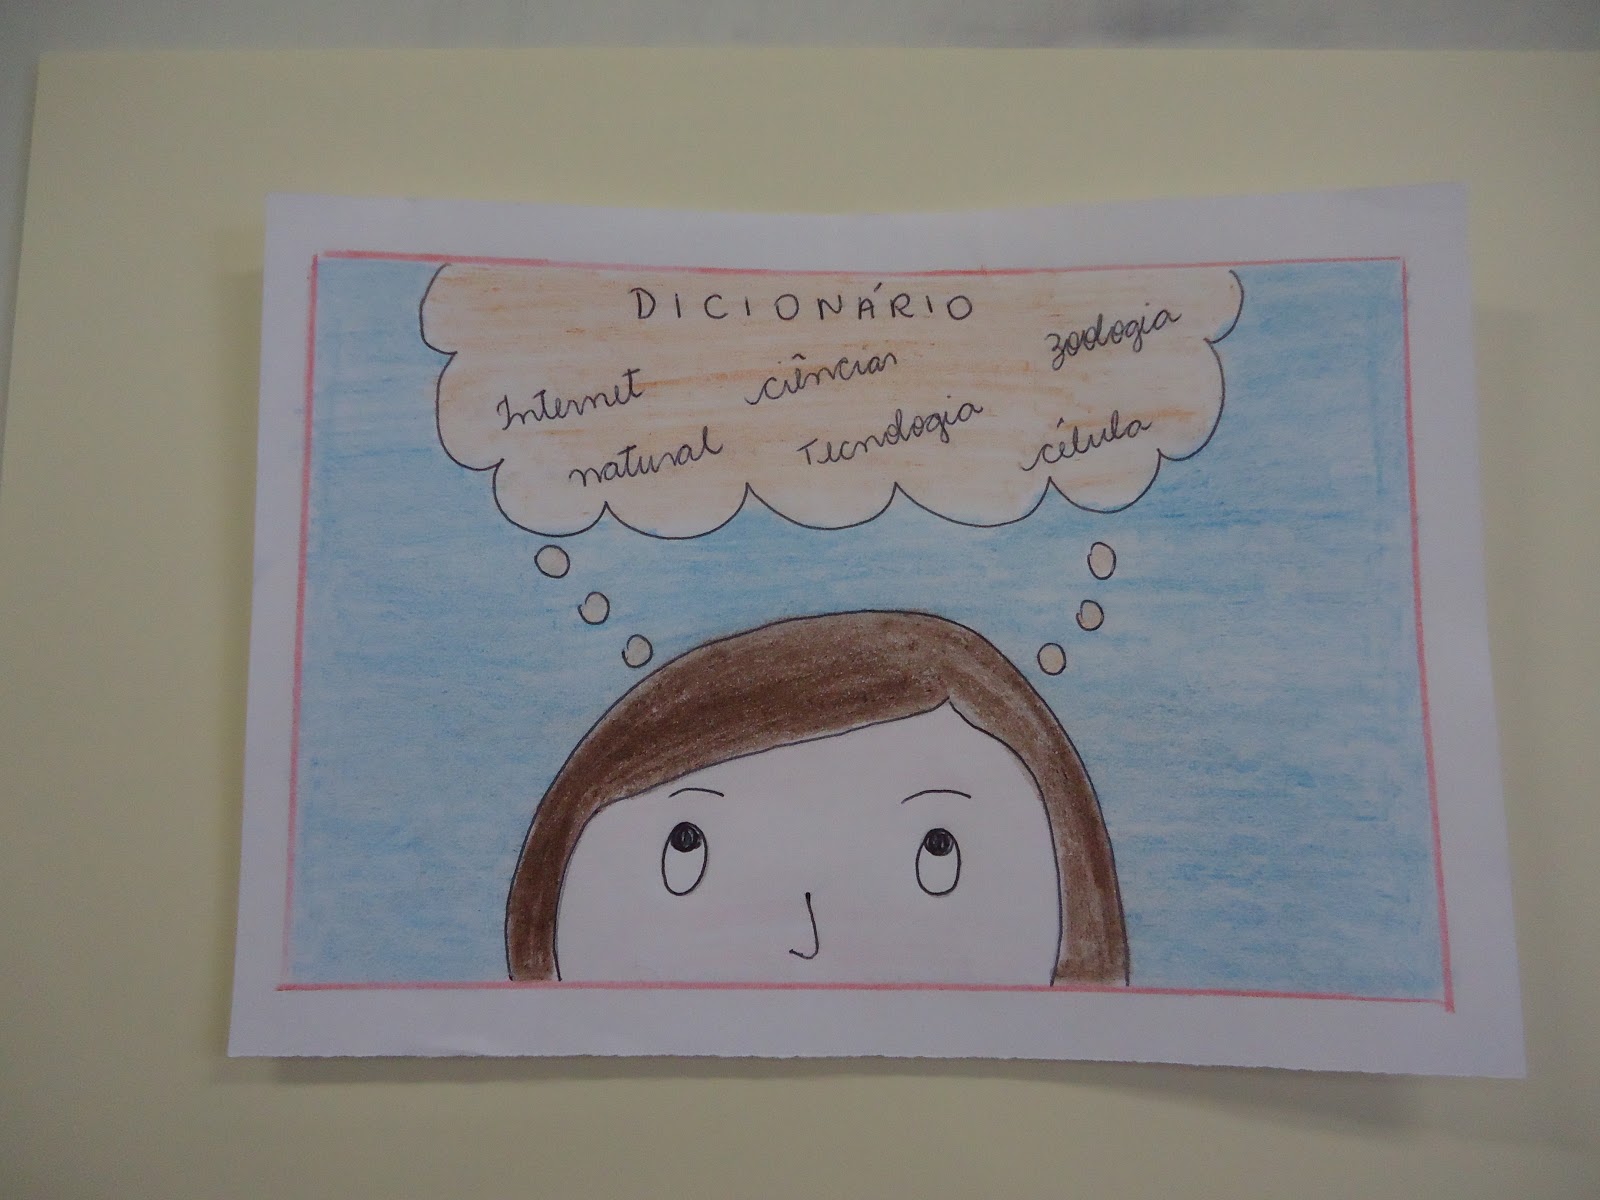 DICIONÁRIO
Internet ciências zoologia
natural Tecnologia célula